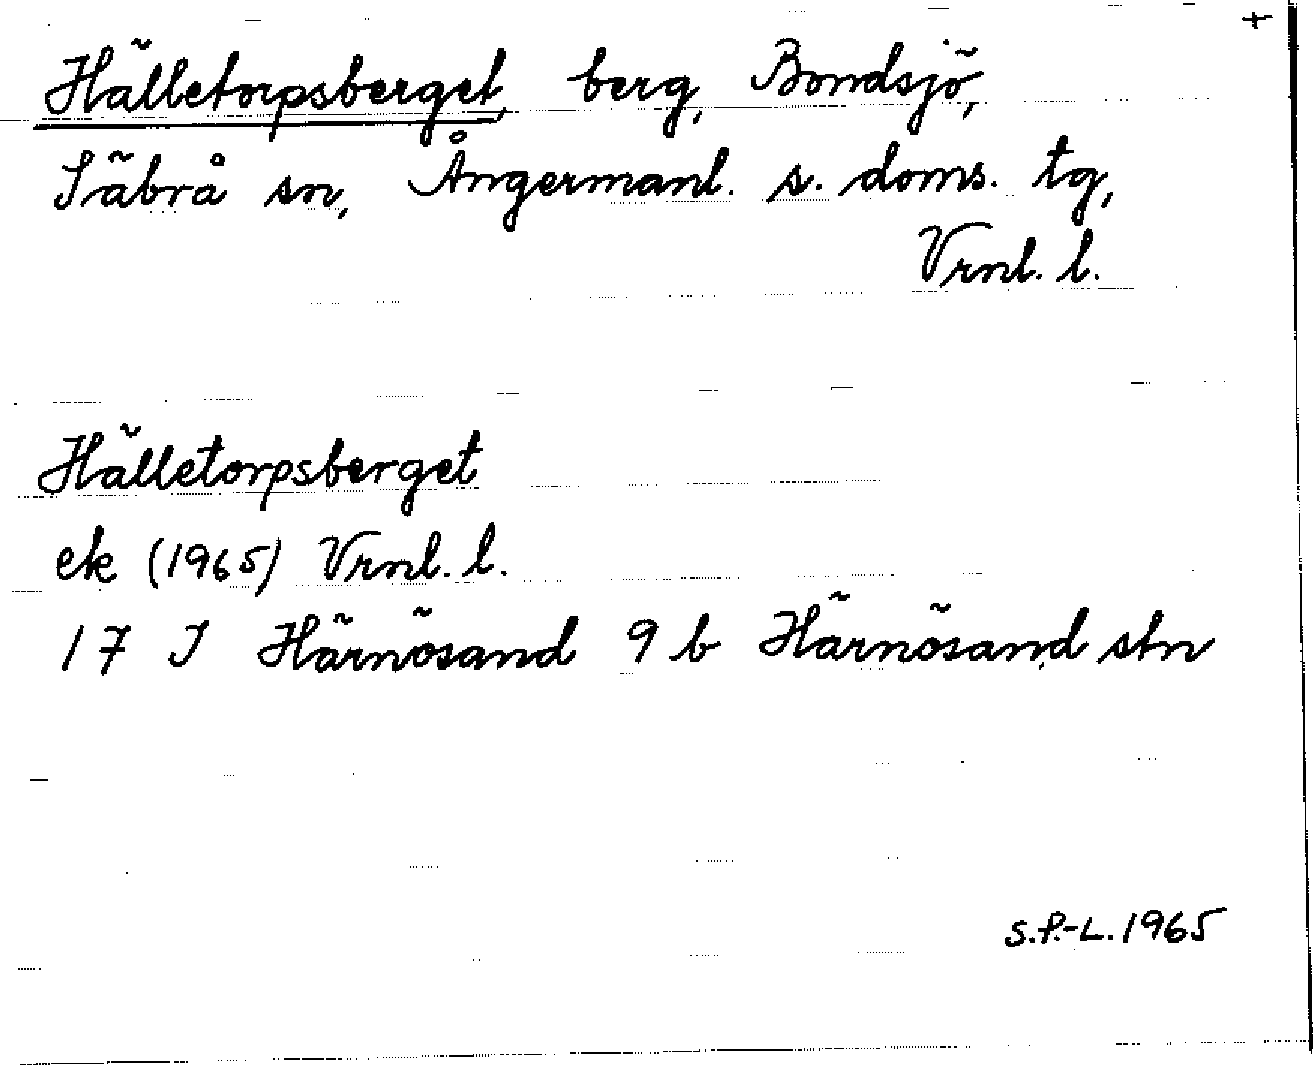 +
Hälletorpsberget, berg, Bondsjö,
Säbrå sn, Ångermanl. s. doms. tg,
Vrnl. l.
Hälletorpsberget
ek (1965) Vrnl. l.
17 J Härnösand 9 b Härnösand stn
S.P.-L. 1965